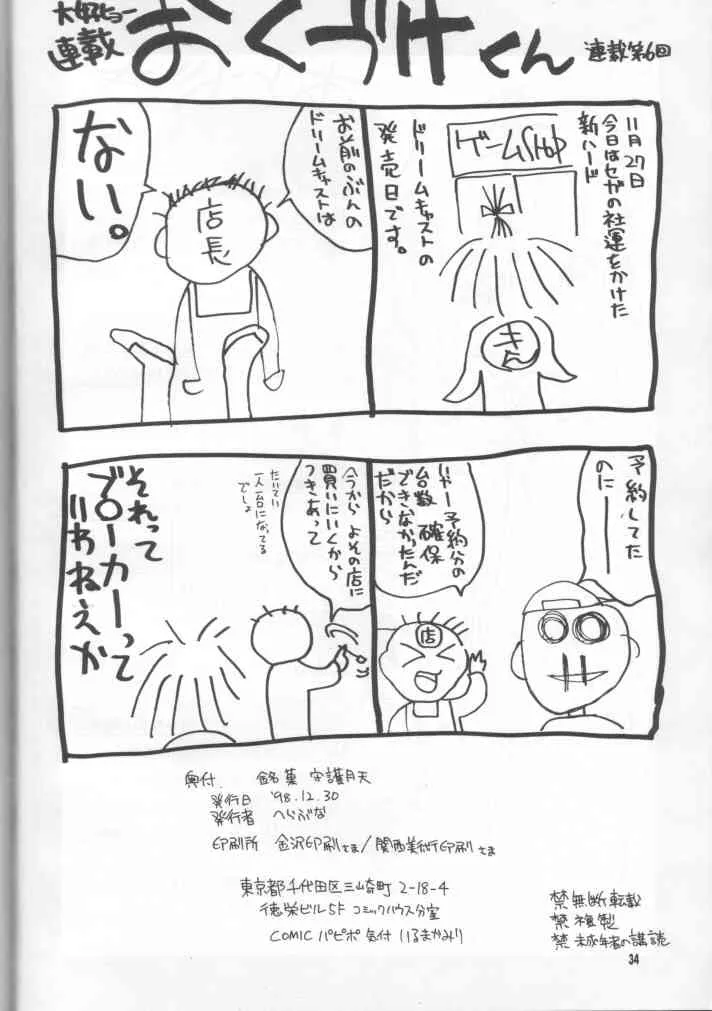 大好ヒョー
連載
おくづけくん
連載第6回
11月27日
今日はセガの社運をかけた
新ハード
ドリームキャストの
発売日です。
ゲームSHOP
きん
お前のぶんの
ドリームキャストは
ない。
店長
予約してた
のにーー
いやー予約分の
台数確保
できなかったんだ
だから
店
今から よその店に
買いにいくから
つきあって
たいてい
一人一台になってる
でしょ
それって
ブローカーって
いわねえか
奥付 銘菓 守護月天
発行日 '98.12.30
発行者 へらぶな
印刷所 金沢印刷さま/関西美術印刷さま
東京都千代田区三崎町 2-18-4
徳栄ビル5F コミックハウス分室
COMIC パピポ 気付 いるまかみり
禁無断転載
禁複製
禁未成年者の購読
34